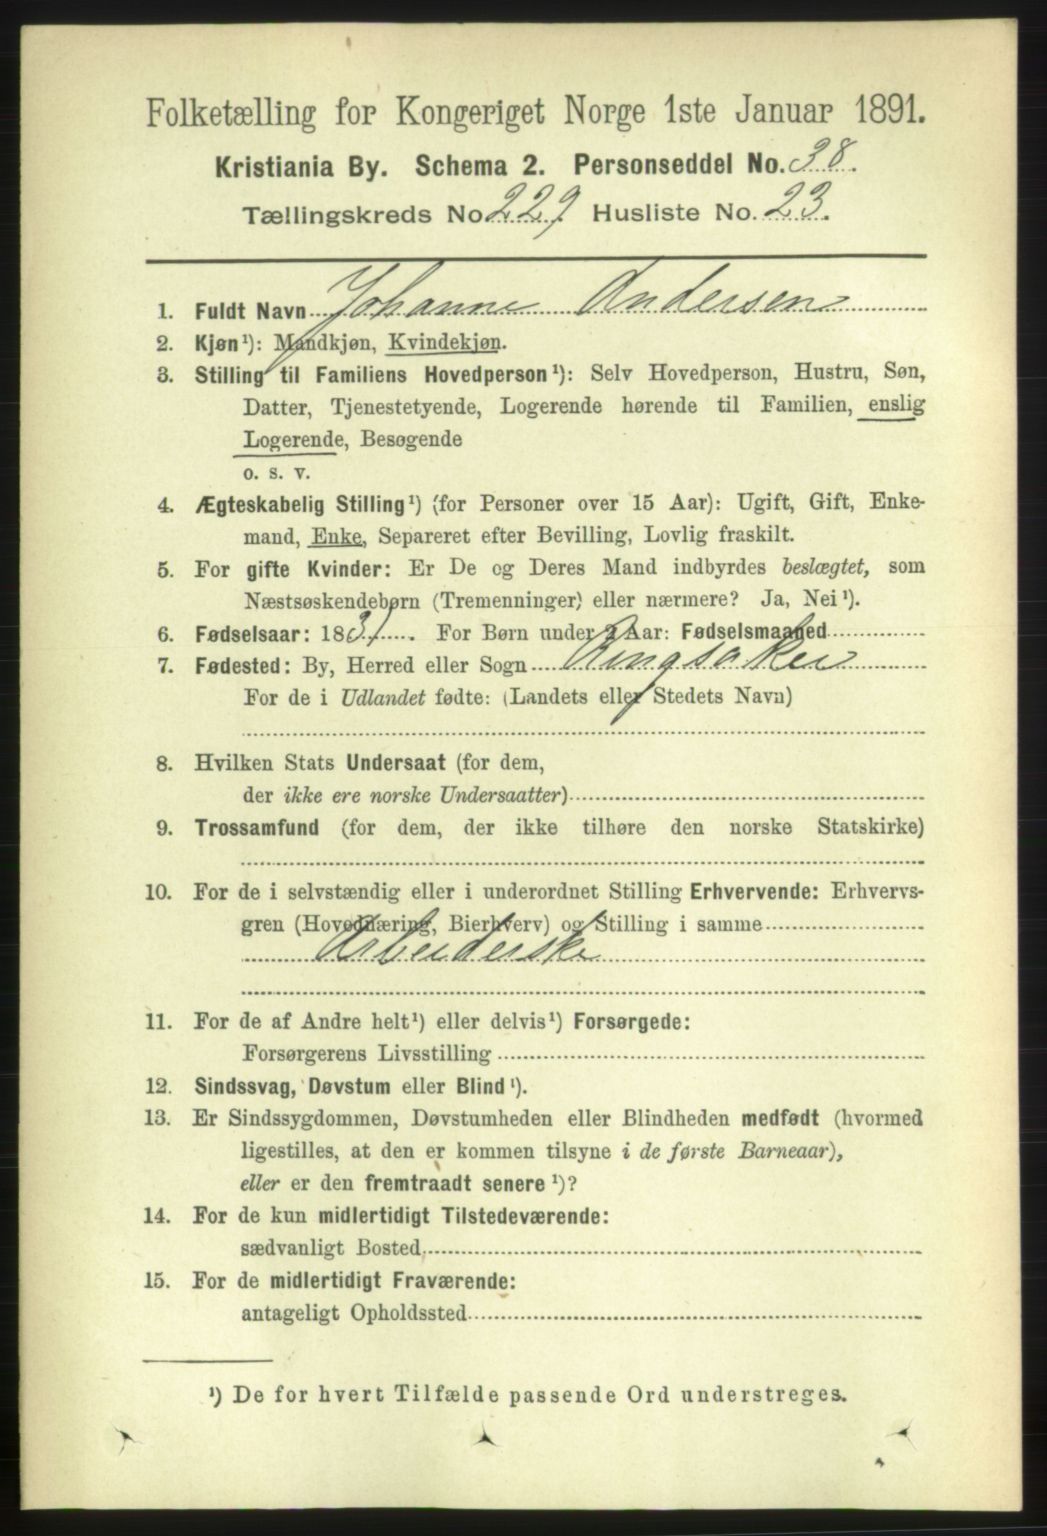 Folketælling for Kongeriget Norge 1ste Januar 1891.
Kristiania By. Schema 2. Personseddel No. 38.
Tællingskreds No. 229. Husliste No. 23.
1. Fuldt Navn Johanne Andersen
2. Kjøn¹): Mandkjøn, Kvindekjøn.
3. Stilling til Familiens Hovedperson¹): Selv Hovedperson, Hustru, Søn,
Datter, Tjenestetyende, Logerende hørende til Familien, enslig
Logerende, Besøgende
o. s. v.
4. Ægteskabelig Stilling¹) (for Personer over 15 Aar): Ugift, Gift, Enke-
mand, Enke, Separeret efter Bevilling, Lovlig fraskilt.
5. For gifte Kvinder: Er De og Deres Mand indbyrdes beslægtet, som
Næstsøskendebørn (Tremenninger) eller nærmere? Ja, Nei¹).
6. Fødselsaar: 1831. For Børn under 2 Aar: Fødselsmaaned
7. Fødested: By, Herred eller Sogn Ringsaker
For de i Udlandet fødte: (Landets eller Stedets Navn)
8. Hvilken Stats Undersaat (for dem,
der ikke ere norske Undersaatter)
9. Trossamfund (for dem, der ikke tilhøre den norske Statskirke)
10. For de i selvstændig eller i underordnet Stilling Erhvervende: Erhvervs-
gren (Hovednæring, Bierhverv) og Stilling i samme
Arbeiderske
11. For de af Andre helt¹) eller delvis¹) Forsørgede:
Forsørgerens Livsstilling
12. Sindssvag, Døvstum eller Blind¹).
13. Er Sindssygdommen, Døvstumheden eller Blindheden medfødt (hvormed
ligestilles, at den er kommen tilsyne i de første Barneaar),
eller er den fremtraadt senere¹)?
14. For de kun midlertidigt Tilstedeværende:
sædvanligt Bosted
15. For de midlertidigt Fraværende:
antageligt Opholdssted
¹) De for hvert Tilfælde passende Ord understreges.